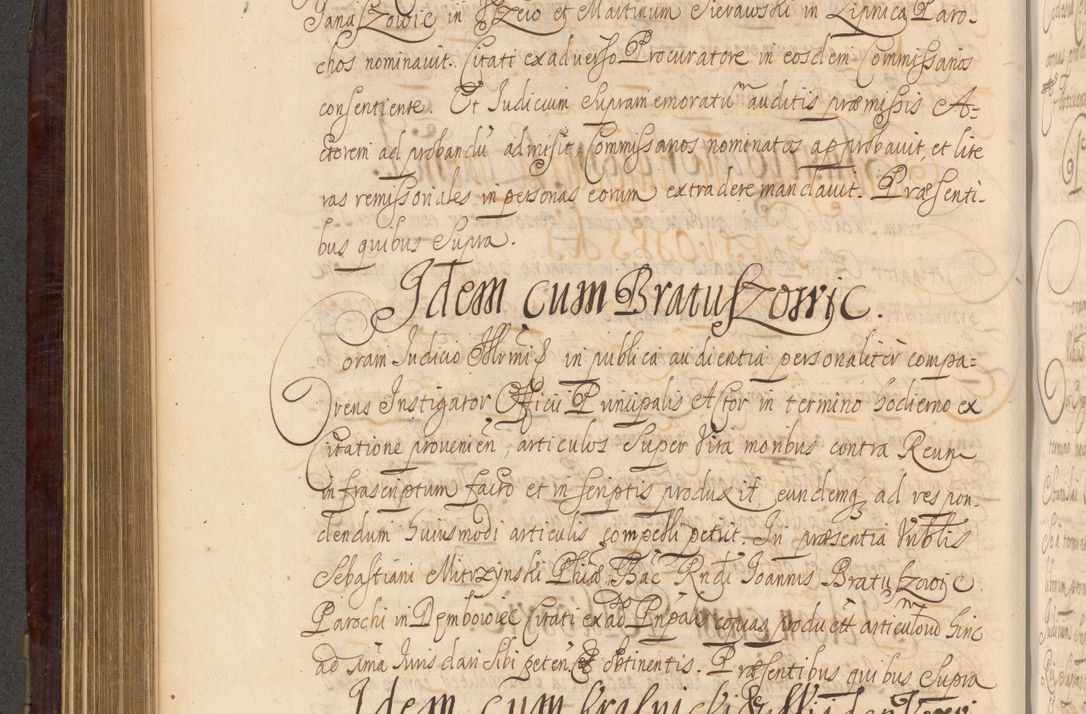 JanaSzowic in Szciο et Martinum Sierawski in Lipnica Paro-
chos nominauit. Citati ex aduerso Procuratore in eosdem Commissarios
consentiente. Et Iudicium Supramemoratũ auditis præmissis A-
ctorem ad probandũ admisit, Commissarios nominatos approbauit, et lite
ras remissoriales in personas eorum extradere mandauit. Præsenti-
bus quibus Supra.
Idem cum BratuSzowic.
Coram Iudicio in publica audientia personaliter compa-
rens Instigator Officii Principalis Actor in termino hodierno ex
Citatione prouenien, articulos Super vita moribus contra Reum
infrascriptum facto et in scriptis produxit, eundemq ad respon-
dendum huiusmodi articulis compelli petiit. In præsentia Nobilis
Sebastiani Mitrzynski Phiæ Bac Rndi Joannis BratuSzowic
Parochi in Dembowiec Citati ex adο Prīpalis copias productũ articulorũ hinc
ad Ima Iuris dari Sibi peten et obtinentis. Præsentibus quibus Supra
Idem cum